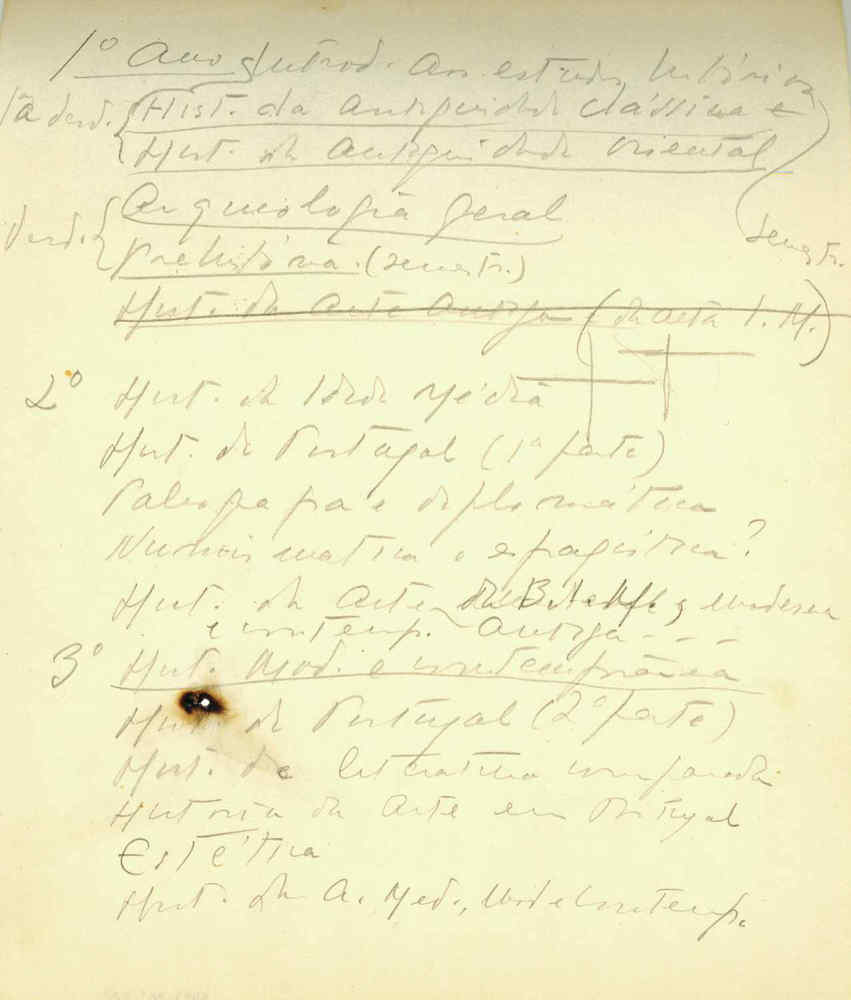 1º Ano Introd. aos estudos históricos
1ª Hist. da Antiguidade clássica e
Hist. da Antiguidade Oriental
Arqueologia geral semestr.
Prehistórica. (semestr.)
Hist. da Arte Antiga (da arte I. M.)
2º Hist. da Idade Média
Hist. de Portugal (1ª parte)
Paleografia e diplomática
Numismática e esfragística?
Hist. da Arte moderna
e contemp. Antiga - - -
3º Hist. Mod. e contemporânea
Hist. de Portugal (2ª parte)
Hist. de literatura comparada
História da Arte em Portugal
Estética
Hist. da A. Med., Mod e Contemp.